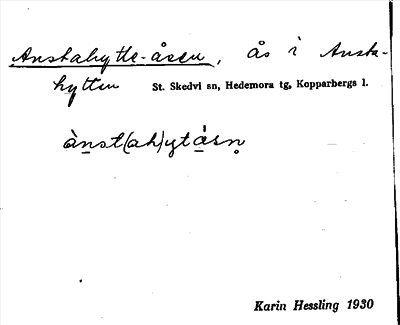 Anstahytte-åsen, ås i Ansta-
hyttan St. Skedvi sn, Hedemora tg, Kopparbergs l.
ànst(ah)ytåsn̥
Karin Hessling 1930